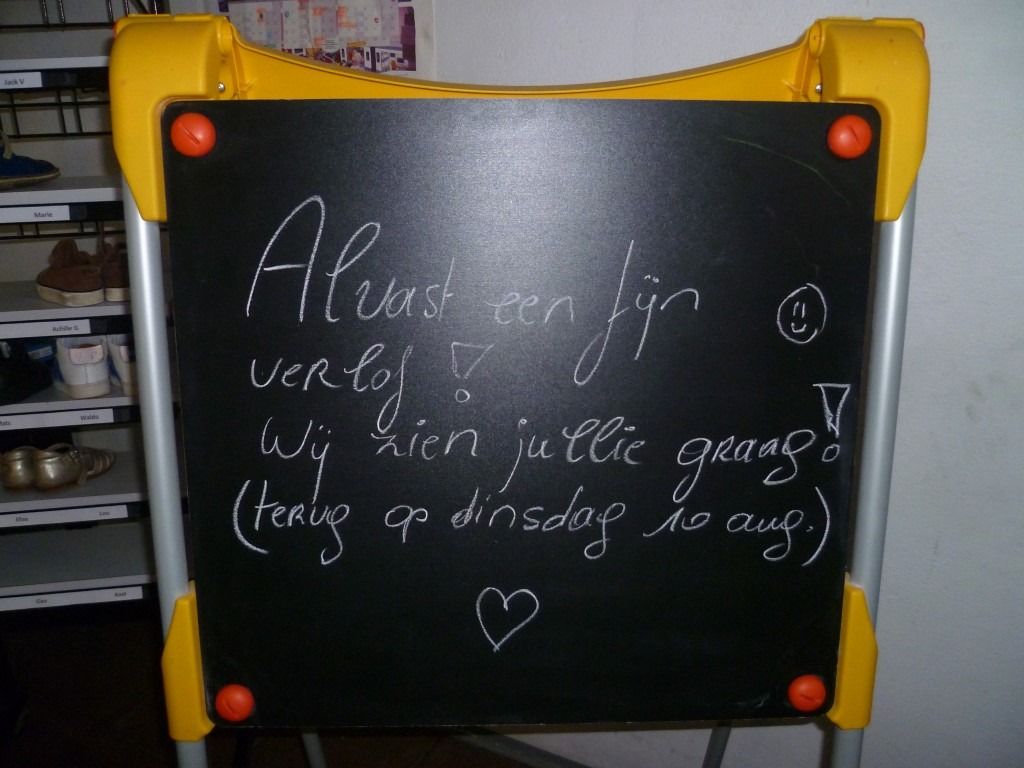 Jack V
Marie
Achille G
Waldo
Alvast een fijn
verlof!
Wij zien jullie graag!
(terug op dinsdag 10 aug.)